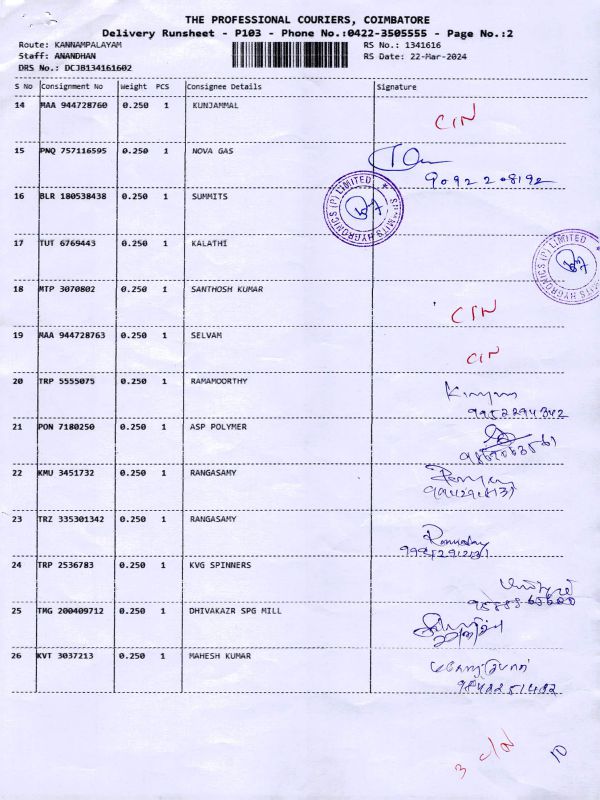 THE PROFESSIONAL COURIERS, COIMBATORE
Delivery Runsheet - P103 - Phone No.:0422-3505555 - Page No.:2
Route: KANNAMPALAYAM RS No.: 1341616
Staff: ANANDHAN RS Date: 22-Mar-2024
DRS No.: DCJB134161602
S No Consignment No Weight PCS Consignee Details Signature
14 MAA 944728760 0.250 1 KUNJAMMAL
CIN
15 PNQ 757116595 0.250 1 NOVA GAS
9092208192
16 BLR 180538438 0.250 1 SUMMITS
SUMMITS HYGRONICS (P) LIMITED
17 TUT 6769443 0.250 1 KALATHI
SUMMITS HYGRONICS (P) LIMITED
18 MTP 3070802 0.250 1 SANTHOSH KUMAR
CIN
19 MAA 944728763 0.250 1 SELVAM
CIN
20 TRP 5555075 0.250 1 RAMAMOORTHY
9952294342
21 PON 7180250 0.250 1 ASP POLYMER
22 KMU 3451732 0.250 1 RANGASAMY
23 TRZ 335301342 0.250 1 RANGASAMY
24 TRP 2536783 0.250 1 KVG SPINNERS
25 TMG 200409712 0.250 1 DHIVAKAZR SPG MILL
26 KVT 3037213 0.250 1 MAHESH KUMAR
3 C/N 10